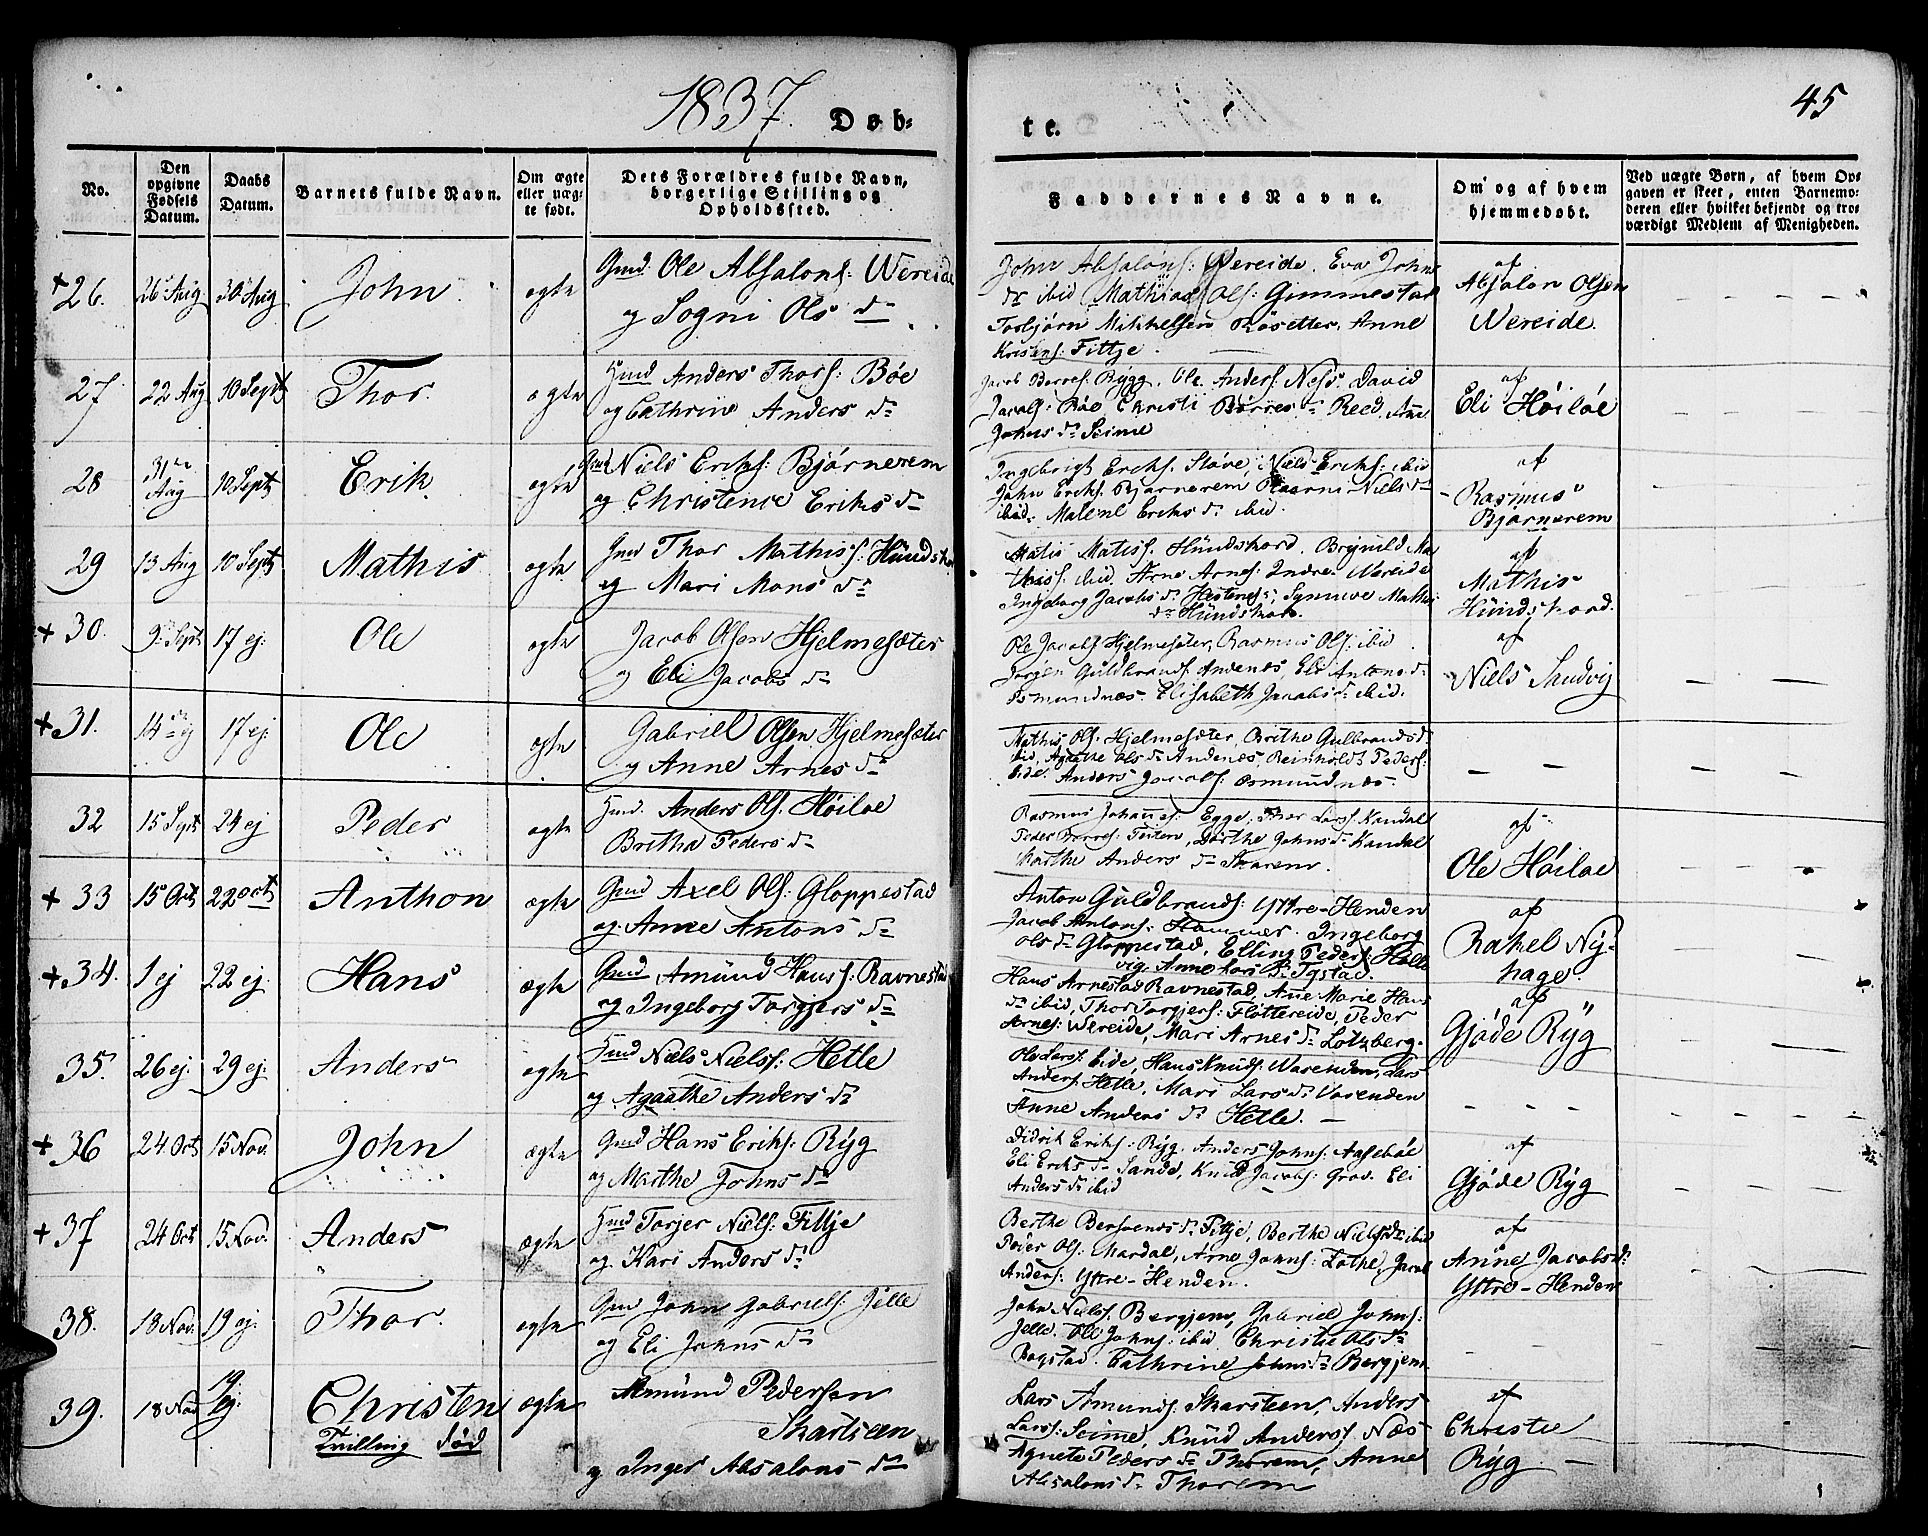 1837. Døb-
te. 45
No. | Den opgivne Fødsels Datum. | Daabs Datum. | Barnets fulde Navn. | Om ægte eller uægte født. | Dets Forældres fulde Navn, borgerlige Stilling og Opholdssted. | Faddernes Navne. | Om og af hvem hjemmedøbt. | Ved uægte Børn, af hvem Opgaven er skeet, enten Barnemoderen eller hvilket bekjendt og troværdigt Medlem af Menigheden.
+ 26. 26 Aug 30 Aug John ægte Gmd: Ole Absalons: Wereide
og Sogni Ols dr
John Absalons: Wereide. Eva Johns
dr ibid Mathias Ols: Gimmestad
Torbjørn Mikkelsen Anne
Kristens: Fittje.
af
Absalon Olsen
Wereide.
27 22 Aug 10 Sept Thor. ægte Huusmd Anders Thors: Böe
og Cathrine Anders dr
Jacob Rygg. Ole Anders: Ness. David
Jacobs: Böe Christi Börres dr Reed. Anne
Johns dr Seime
af
Eli Höiloe
28 31te Aug 10 Sept Erik ægte Gmd Niels Eriks: Bjørnerem
og Christence Eriks dr
Ingebrigt Eriks. Støve, Niels Eriks: ibid
John Eriks. Bjørnerem Niels dr
ibid. Malene Eriks dr ibid.
af
Rasmus
Bjørnerem
29 13 Aug 10 Sept Mathis ægte Gmd Thor Mathiss: Hündsk
og Mari Mons dr
Matis Matiss. Hündskord. Brynild Ma
thiss: ibid. Arne Arnes: Indre Wereide
Ingeborg Jacobs dr Hestenes; Synneve Mathis
dr Hündskor.
af
Mathis
Hündskord.
+ 30. 9 Sept 17 ej. Ole ægte Jacob Olsen Hjelmesæter
og Eli Jacobs dr
Ole Jacobs Hjelmesæter, Rasmus Ols: ibid
Jörgen Guldbrands: Andenæs, Eli Antons dr
Osmundnæs. Elisabeth Jacobs dr ibid.
af
Niels Sandvig
+ 31. 14de ej 17 ej. Ole ægte Gabriel Olsen Hjelmesæter
og Anne Arnes dr
Mathis Ols: Hjelmesæter, Brithe Gulbrands dr
ibid, Agathe Ols dr Andenæs, Reinholdt Peders:
ibid. Anders Jacobs: Osmundnæs.
32 15 Sept 24 ej Peder ægte Huusmd: Anders Ols. Höiloe
Britha Peders dr
Rasmus Johannes: Egge, Thor Lars: Kandal
Peder Börres: Teiten, Dorthe Johns dr Kandal
Marthe Anders dr Skarem.
af
Ole Höiloe
+ 33 15 Oct 22 Oct Anthon ægte Gmd Axel Ols: Gloppestad
og Anne Antons dr
Anton Guldbrands: Yttre-Henden
Jacob Antons: Hammer. Ingeborg
Ols dr Gloppestad, Elling Peders: Helle
vig. Anne Lars dr Tystad.
af
Rakel Ny-
hage.
+ 34. 1 ej 22 ej. Hans ægte Gmd Amund Hans: Ravnestad
og Ingeborg Torgjers dr
Hans Arnestad Ravnestad, Ane Marie Hans
dr ibid, Thor Torgjers: Flöttereide, Peder
Arnes: Wereide, Mari Arnes dr Lotzberg.
af
Gjøde Ryg
35. 26 ej. 29 ej. Anders ægte Huusmd Niels Niels: Hetle
og Agaathe Anders dr
Ole Lars: Eide, Hans Knuds: Warenden, Lars
Anders: Hetle, Mari Lars dr Varenden
Anne Anders dr Hetle. —
+ 36 24 Oct 15 Nov. John ægte Gmd Hans Eriks: Ryg
og Marthe Johns dr
Didrik Eriks: Ryg. Anders Johns: Aasebøe
Eli Eriks dr Sande, Knud Jacobs: Grov. Eli
Anders dr ibid
af
Gjøde Ryg
+ 37 24 Oct 15 Nov. Anders ægte Huusmd Torjer Niels: Fittje
og Kari Anders dr
Berthe Bersvends dr Fittje, Berthe Niels dr ibid
Peder Ols: Mardal, Arne Johns: Lothe, Jacob
Anders: Yttre-Henden.
af
Anne Jacobs dr
Yttre-Henden
38. 18 Nov. 19 ej. Thor. ægte Gmd John Gabriels: Jelle
og Eli Johns dr
John Niels: Bergjem, Gabriel Johns:
Jelle. Ole Johns: ibid Christie Ols dr
Rogstad. Cathrine Johns dr Bergjem.
39. 18 Nov 19 ej. Christen ægte Amund Pedersen
Tvilling Född Skartseen
og Inger Absalons dr
Lars Amunds: Skarsteen, Anders
Lars: Seime, Knud Anders: Næs
Agnete Peders dr Thorem, Anne
Absalons dr Thorem
af
Christie
Ryg. —